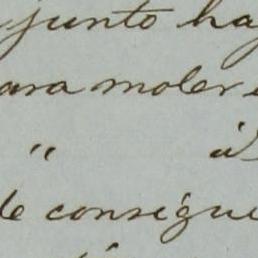 junto ha
ara moler
" id
de consigue